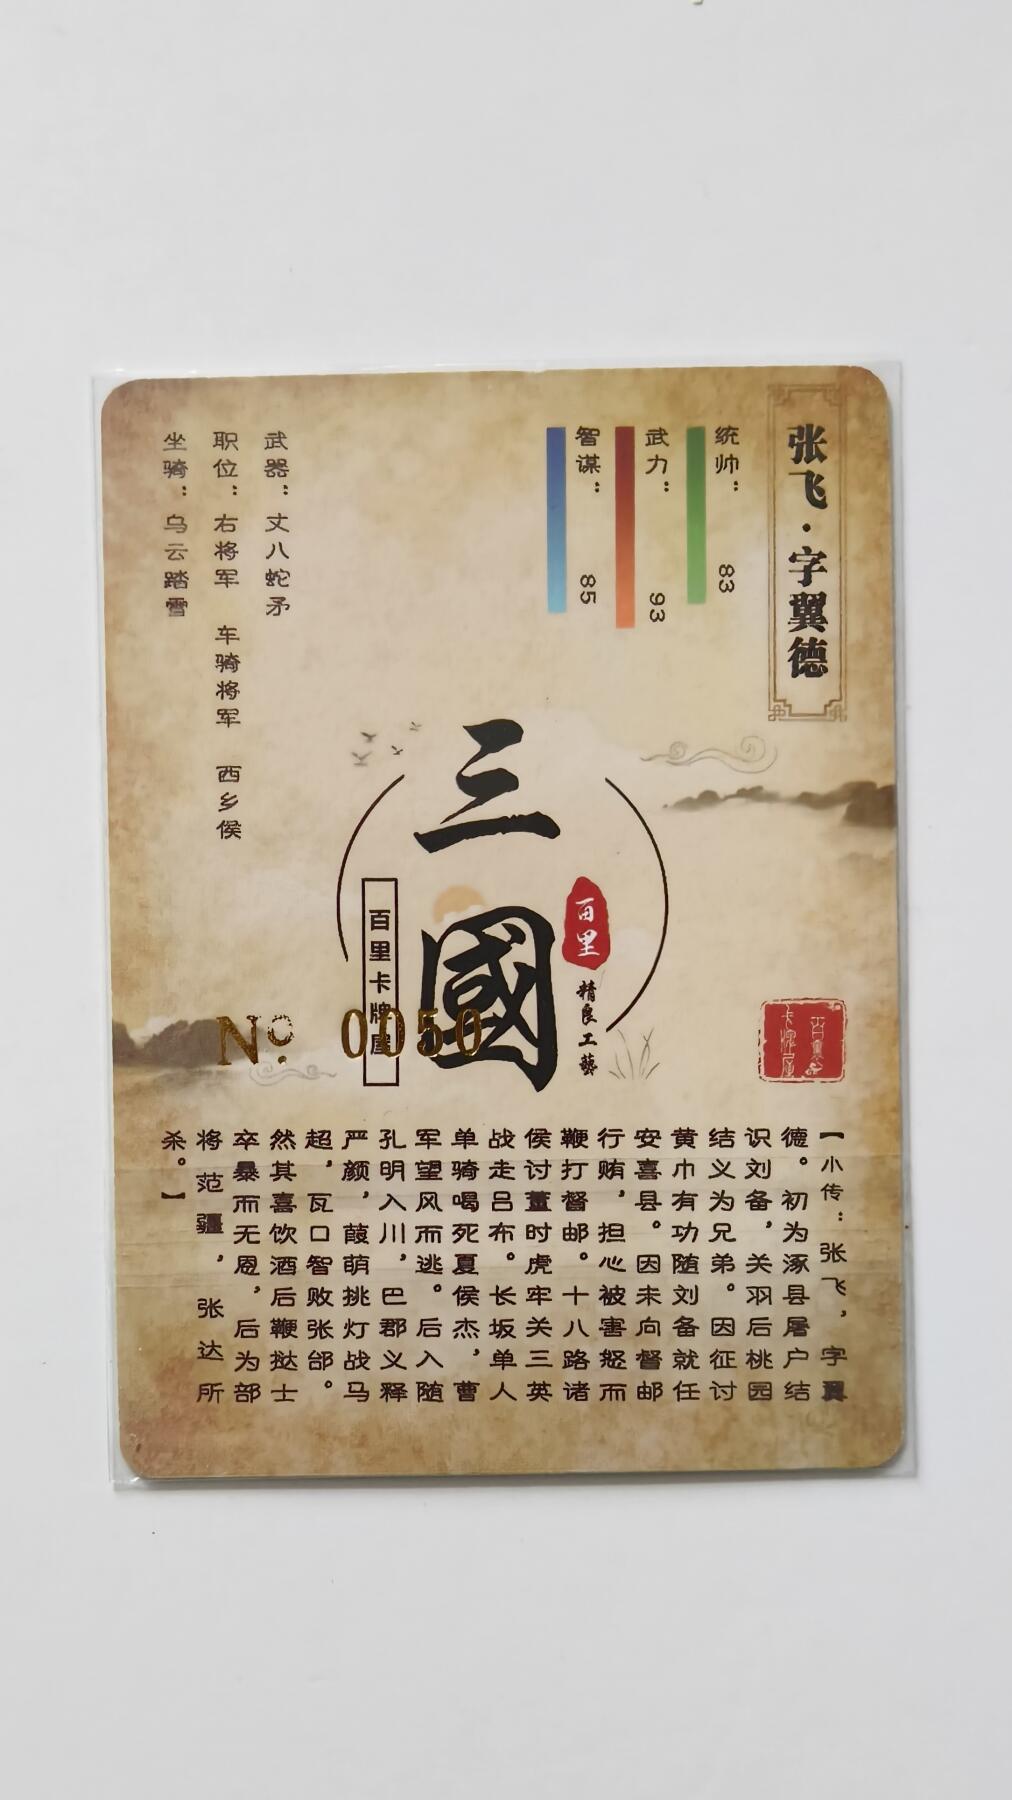 张飞·字翼德
统帅：83
武力：93
智谋：85
武器：丈八蛇矛
职位：右将军 车骑将军 西乡侯
坐骑：乌云踏雪
三國
百里
精良工藝
百里卡牌屋
Nº 0050
百里
卡牌屋
【小传：张飞，字翼
德。初为涿县屠户结
识刘备，关羽后桃园
结义为兄弟。因征讨
黄巾有功随刘备就任
安喜县。因未向督邮
行贿，担心被害怒而
鞭打督邮。十八路诸
侯讨董时虎牢关三英
战走吕布。长坂单人
单骑喝死夏侯杰，曹
军望风而逃。后入随
孔明入川，巴郡义释
严颜，葭萌挑灯战马
超，瓦口智败张郃。
然其喜饮酒后鞭挞士
卒暴而无恩，后为部
将范疆，张达所
杀。】